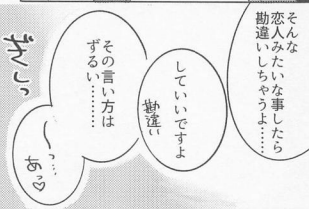 そんな
恋人みたいな事したら
勘違いしちゃうよ……
していいですよ
勘違い
その言い方は
ずるい…………
ぎしっ
〜っ…
あっ♡